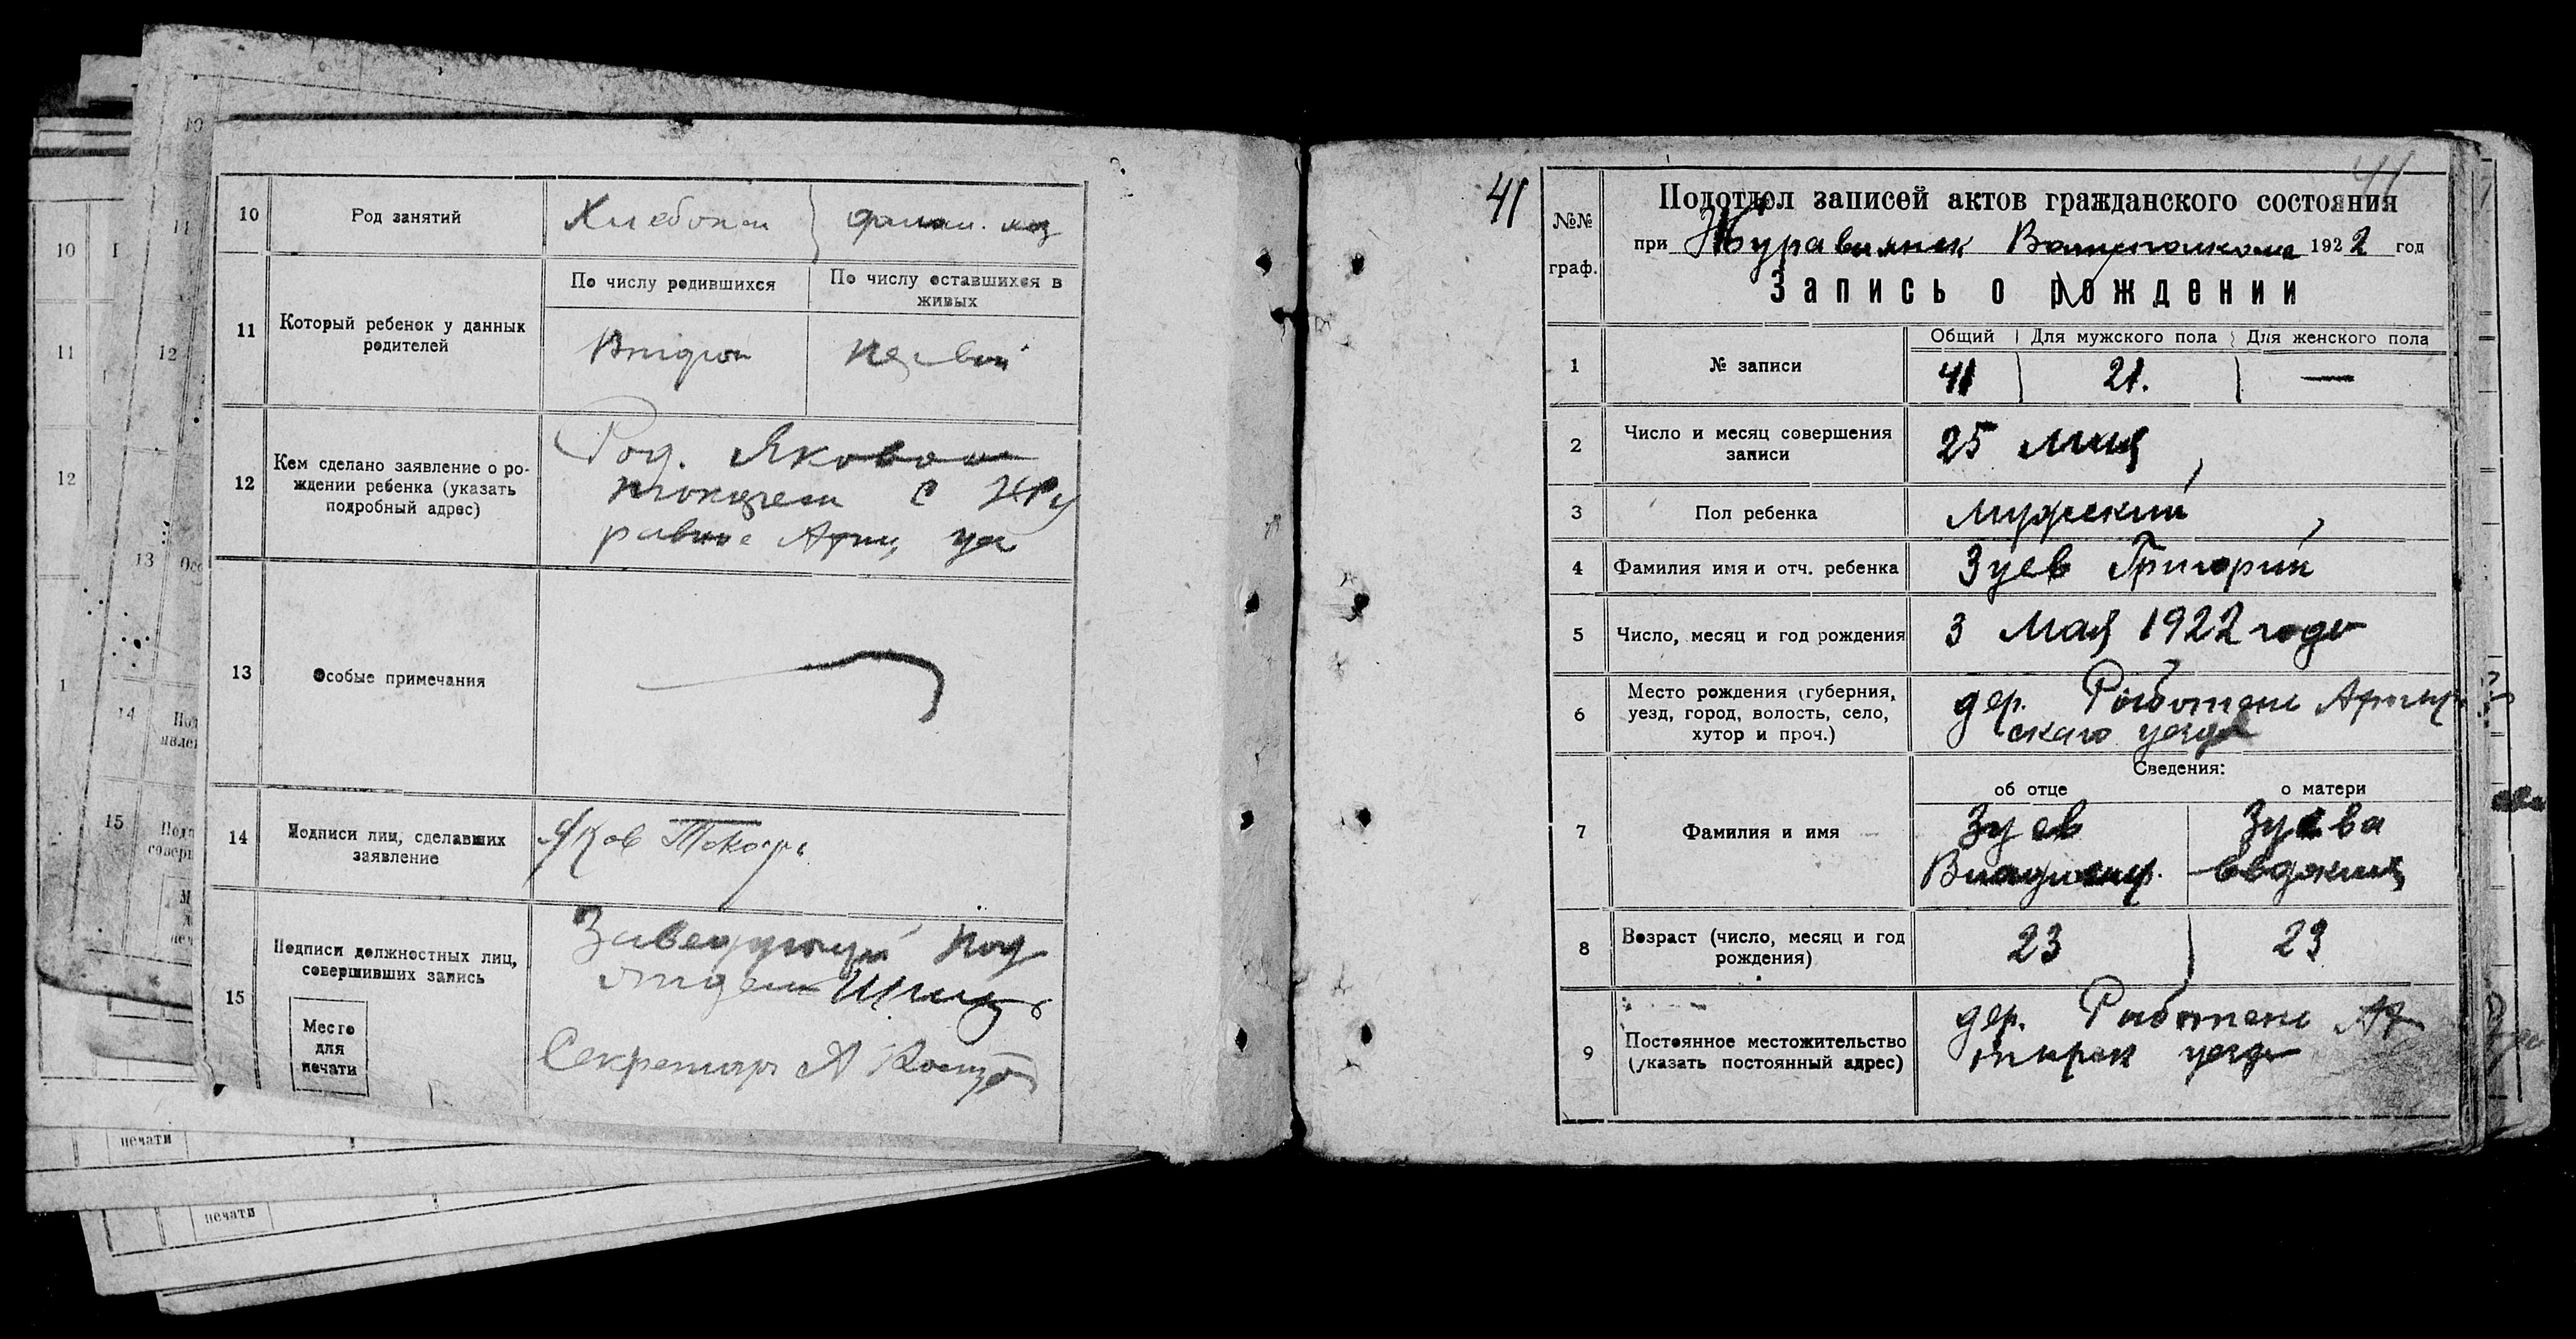 10
Род занятий
Хлебопаш
11
Который ребенок у данных
родителей
По числу родившихся
По числу оставшихся в
живых
Второй
первый
12
Кем сделано заявление о ро-
ждении ребенка (указать
подробный адрес)
Род. Яковом
Токарем с Жу
равное Ахты уез
13
Особые примечания
14
Подписи лиц, сделавших
заявление
Яков Токарь
15
Подписи должностных лиц,
совершивших запись
Место
для
печати
Заведующий под
отделом
Секретарь А
печати
печати
41
41
№№
граф.
Подотдел записей актов гражданского состояния
при Журавлянск Волисполкома 1922 год
Запись о рождении
1
№ записи
Общий
Для мужского пола
Для женского пола
41
21.
—
2
Число и месяц совершения
записи
25 мая
3
Пол ребенка
мужский
4
Фамилия имя и отч. ребенка
Зуев Григорий
5
Число, месяц и год рождения
3 мая 1922 года
6
Место рождения (губерния,
уезд, город, волость, село,
хутор и проч.)
дер. Ахтыр
скаго уезда
Сведения:
7
Фамилия и имя
об отце
о матери
Зуев
Владимир.
Зуева
Евдокия
8
Возраст (число, месяц и год
рождения)
23
23
9
Постоянное местожительство
(указать постоянный адрес)
дер. Ах
тырск уезда